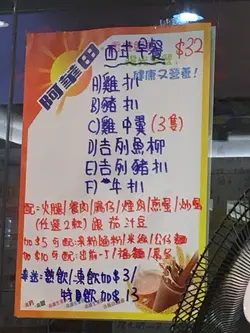 阿華田
西式早餐 $32
健康又營養!
A)雞扒
B)豬扒
C)雞中翼(3隻)
D)吉列魚柳
E)吉列豬扒
F)牛扒
配=火腿/餐肉/腸仔/煙肉/煎蛋/炒蛋
(任選2款) 跟茄汁豆
加$5可配:米粉/麵粉/米線/公仔麵
加$10可配:出前一丁
奉送=熱飲/凍飲加$3/
特日飲加$13